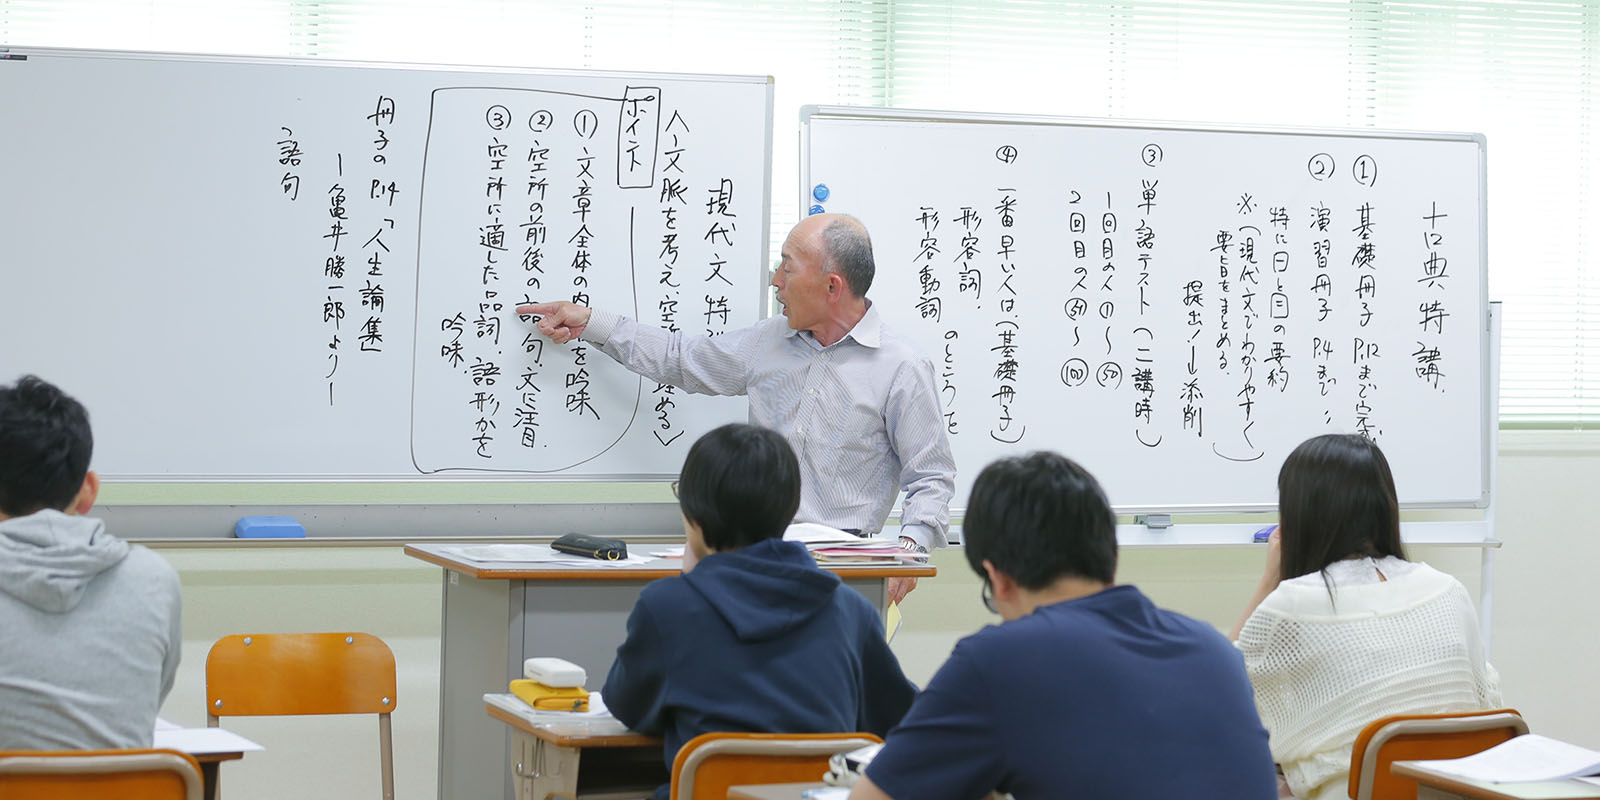 古典特講
① 基礎冊子 P.12まで完成
② 演習冊子 P.4まで 〃
特に曰と曰の要約
※(現代文でわかりやすく
要旨をまとめる。)
提出!→添削
③ 単語テスト(二講時)
1回目の人 ①〜㊿
2回目の人 〜100
④ 一番早い人は、(基礎冊子)
形容詞、
形容動詞
のところを
現代文特
人〜文脈を考え、空 埋める〉
ポイント
① 文章全体の内 を吟味
② 空所の前後の語句、文に注目
③ 空所に適した品詞、語形かを
吟味。
冊子のP.14「人生論集」
ー亀井勝一郎よりー
語句